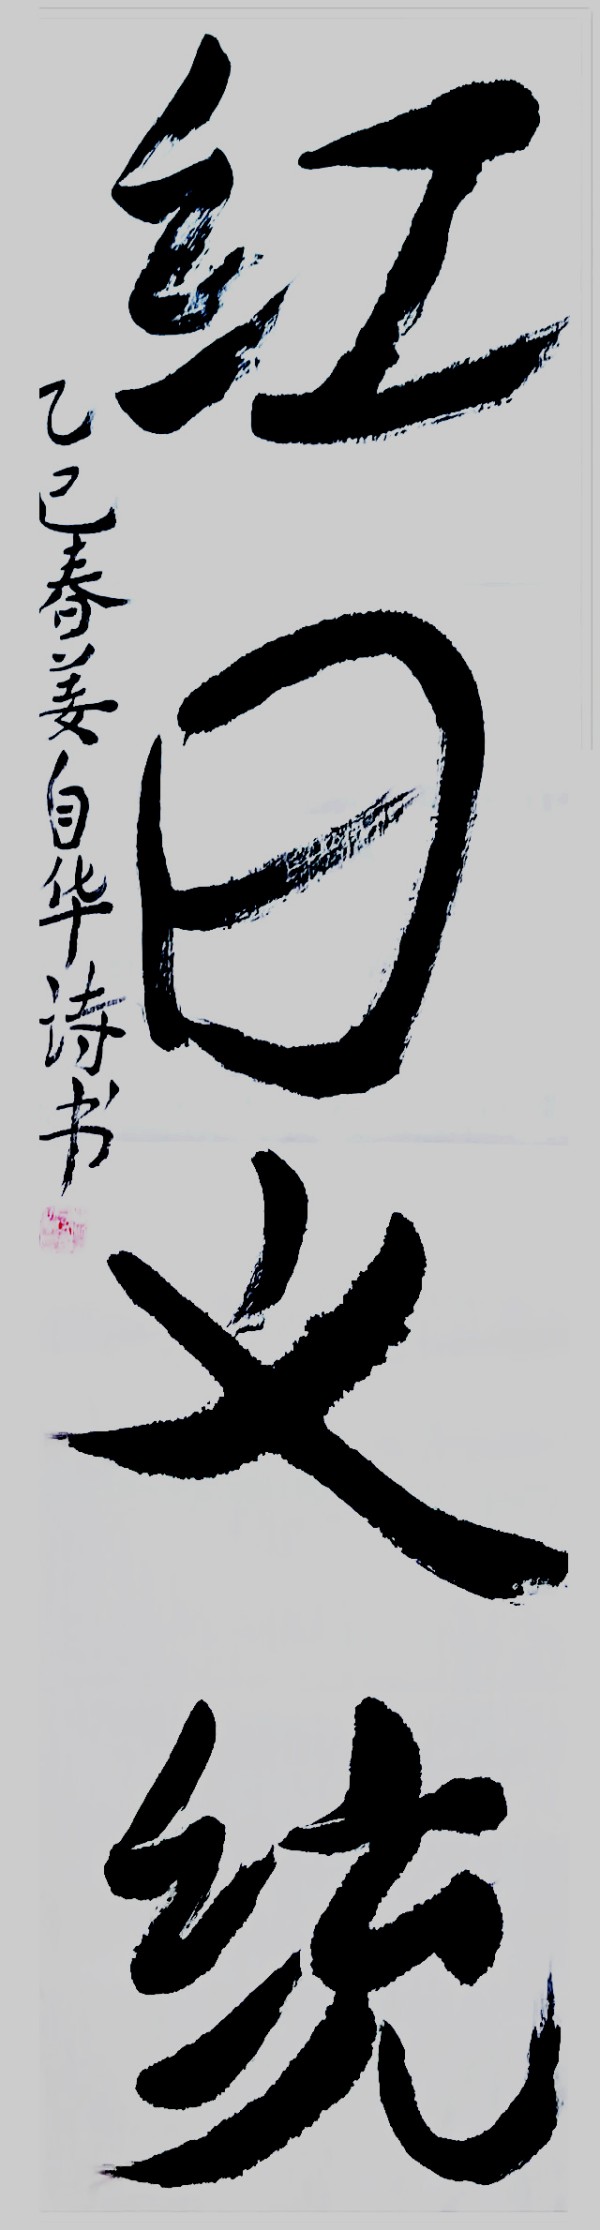 红日义统
乙巳春姜自华诗书